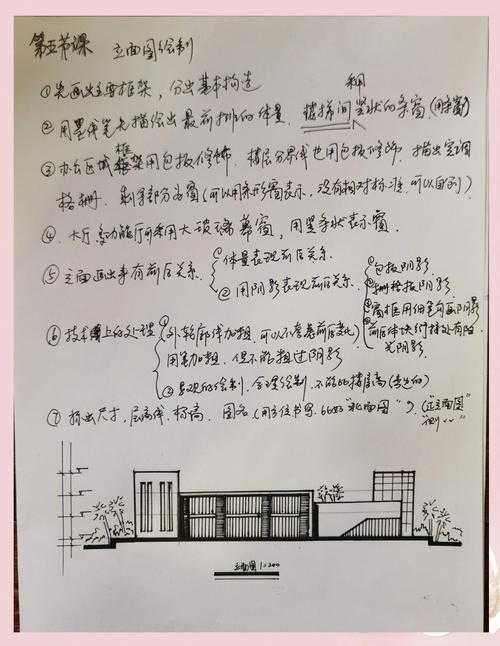 第五节课 立面图绘制
①先画出主要框架，分出基本构造
利用
②用墨线笔先描绘出最前排的体量．楼梯间竖状的条窗（用条窗）
框
③办公区域框架用包板修饰．楼层分界线也用包板修饰，描出空调
格栅．剩余部分为窗（可以用条形窗表示，没有相对标准，可以自列）
④．大厅，多功能厅可采用大玻璃幕窗，用竖条状表示窗．
⑤立面画出来有前后关系．
①体量表现前后关系
②用阴影表现前后关系．
①包板阴影
②格栅板阴影
③窗框用细笔勾画阴影
前后体块衔接处有阴
光阴影
⑥技术图上的处理
①外轮廓线加粗，可以不考虑前后变化
用笔加粗．但不能粗过阴影
③景观的绘制，合理绘制．不能比楼层高
⑦标出尺寸，层高线，标高．图名（用方位书写．比如"北面图"）．
"正立面图"
立面图 1:200